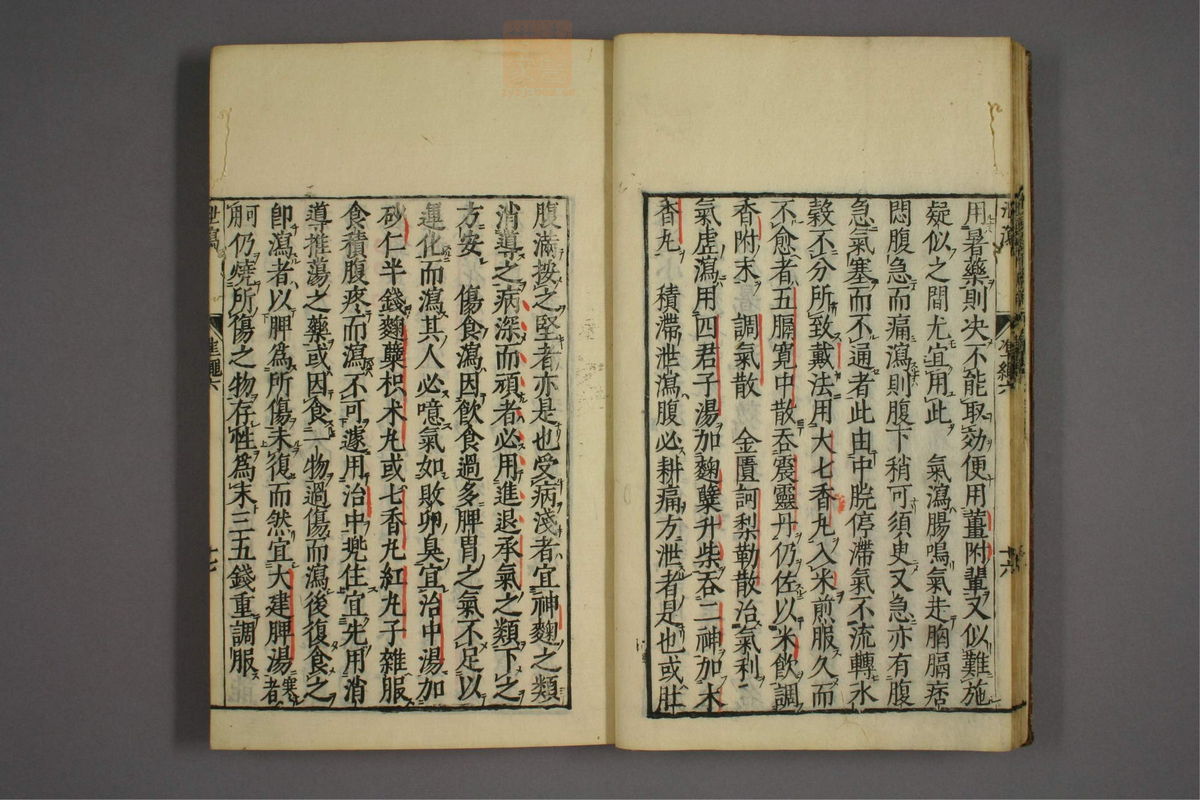 用暑藥則决不能取効便用薑附輩又似難施
疑似之間尤宜用此　氣瀉腸鳴氣走胸膈痞
悶腹急而痛瀉則腹下稍可須臾又急亦有腹
急氣塞而不通者此由中脘停滯氣不流轉水
穀不分所致戴法用大七香丸入米煎服久而
不愈者五膈寬中散吞震靈丹仍佐以米飲調
香附末　調氣散　金匱訶梨勒散治氣利
氣虛瀉用四君子湯加麯蘗升柴吞二神加木
香丸　積滯泄瀉腹必耕痛方泄者是也或肚
腹滿按之堅者亦是也受病淺者宜神麯之類
消導之病深而頑者必用進退承氣之類下之
方安　傷食瀉因飲食過多脾胃之氣不足以
運化而瀉其人必噫氣如敗卵臭宜治中湯加
砂仁半錢麯蘗枳术丸或七香丸紅丸子雜服
食積腹疼而瀉不可遽用治中兠住宜先用消
導推蕩之藥或因食一物過傷而瀉後復食之
卽瀉者以脾爲所傷未復而然宜大建脾湯寒者
可用仍燒所傷之物存性爲末三五錢重調服